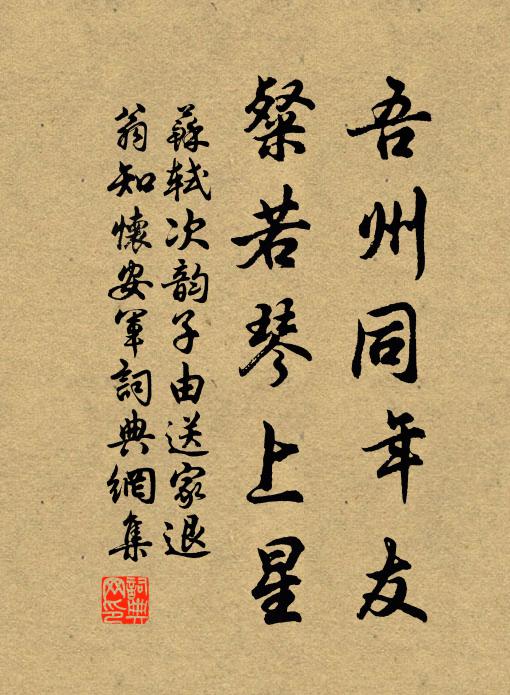 吾州同年友
粲若琴上星
蘇軾次韵子由送家退
翁知懷安軍詞典網集
詞典
网印